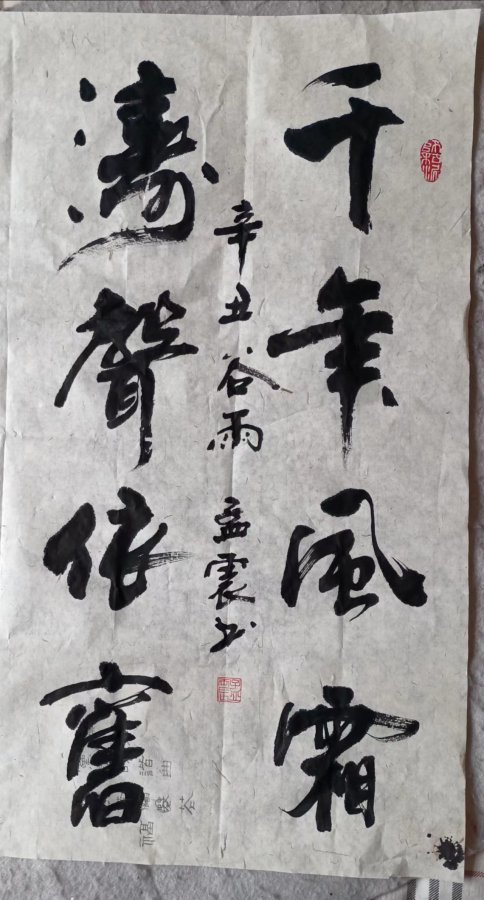 千年風霜
濤聲依舊
辛丑谷雨 孟震书